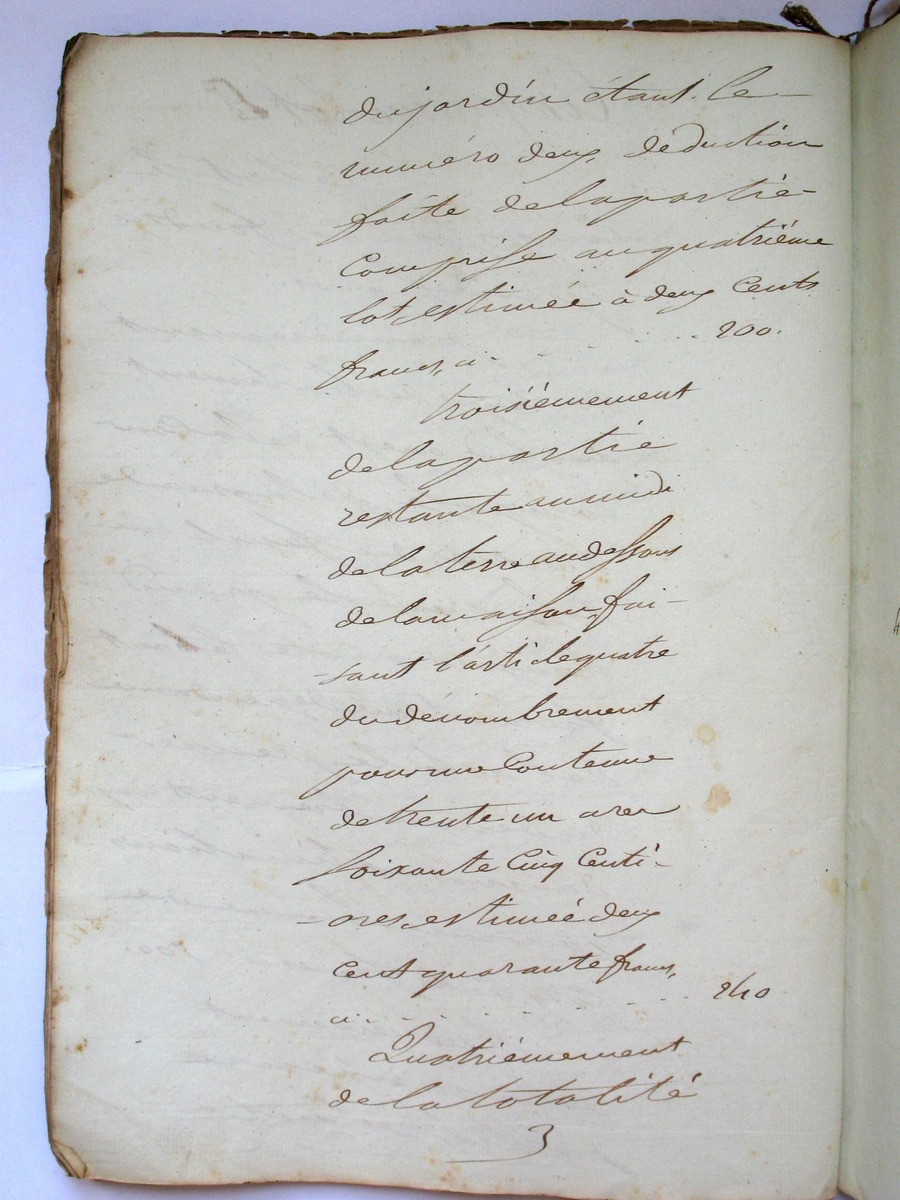 du jardin étant le
numéro deux, déduction
faite de la partie
comprise au quatriéme
lot, estimée à deux cents
francs, ci . . . . . . 200.
troisiémement
de la partie
restante au midi
de la terre au dessous
de la maison, fai-
-sant l'article quatre
du dénombrement
pour une contenue
de trente un ares
soixante cinq centi-
-ares, estimée deux
cent quarante francs,
ci . . . . . . . . 240
Quatriémement
de la totalité
3